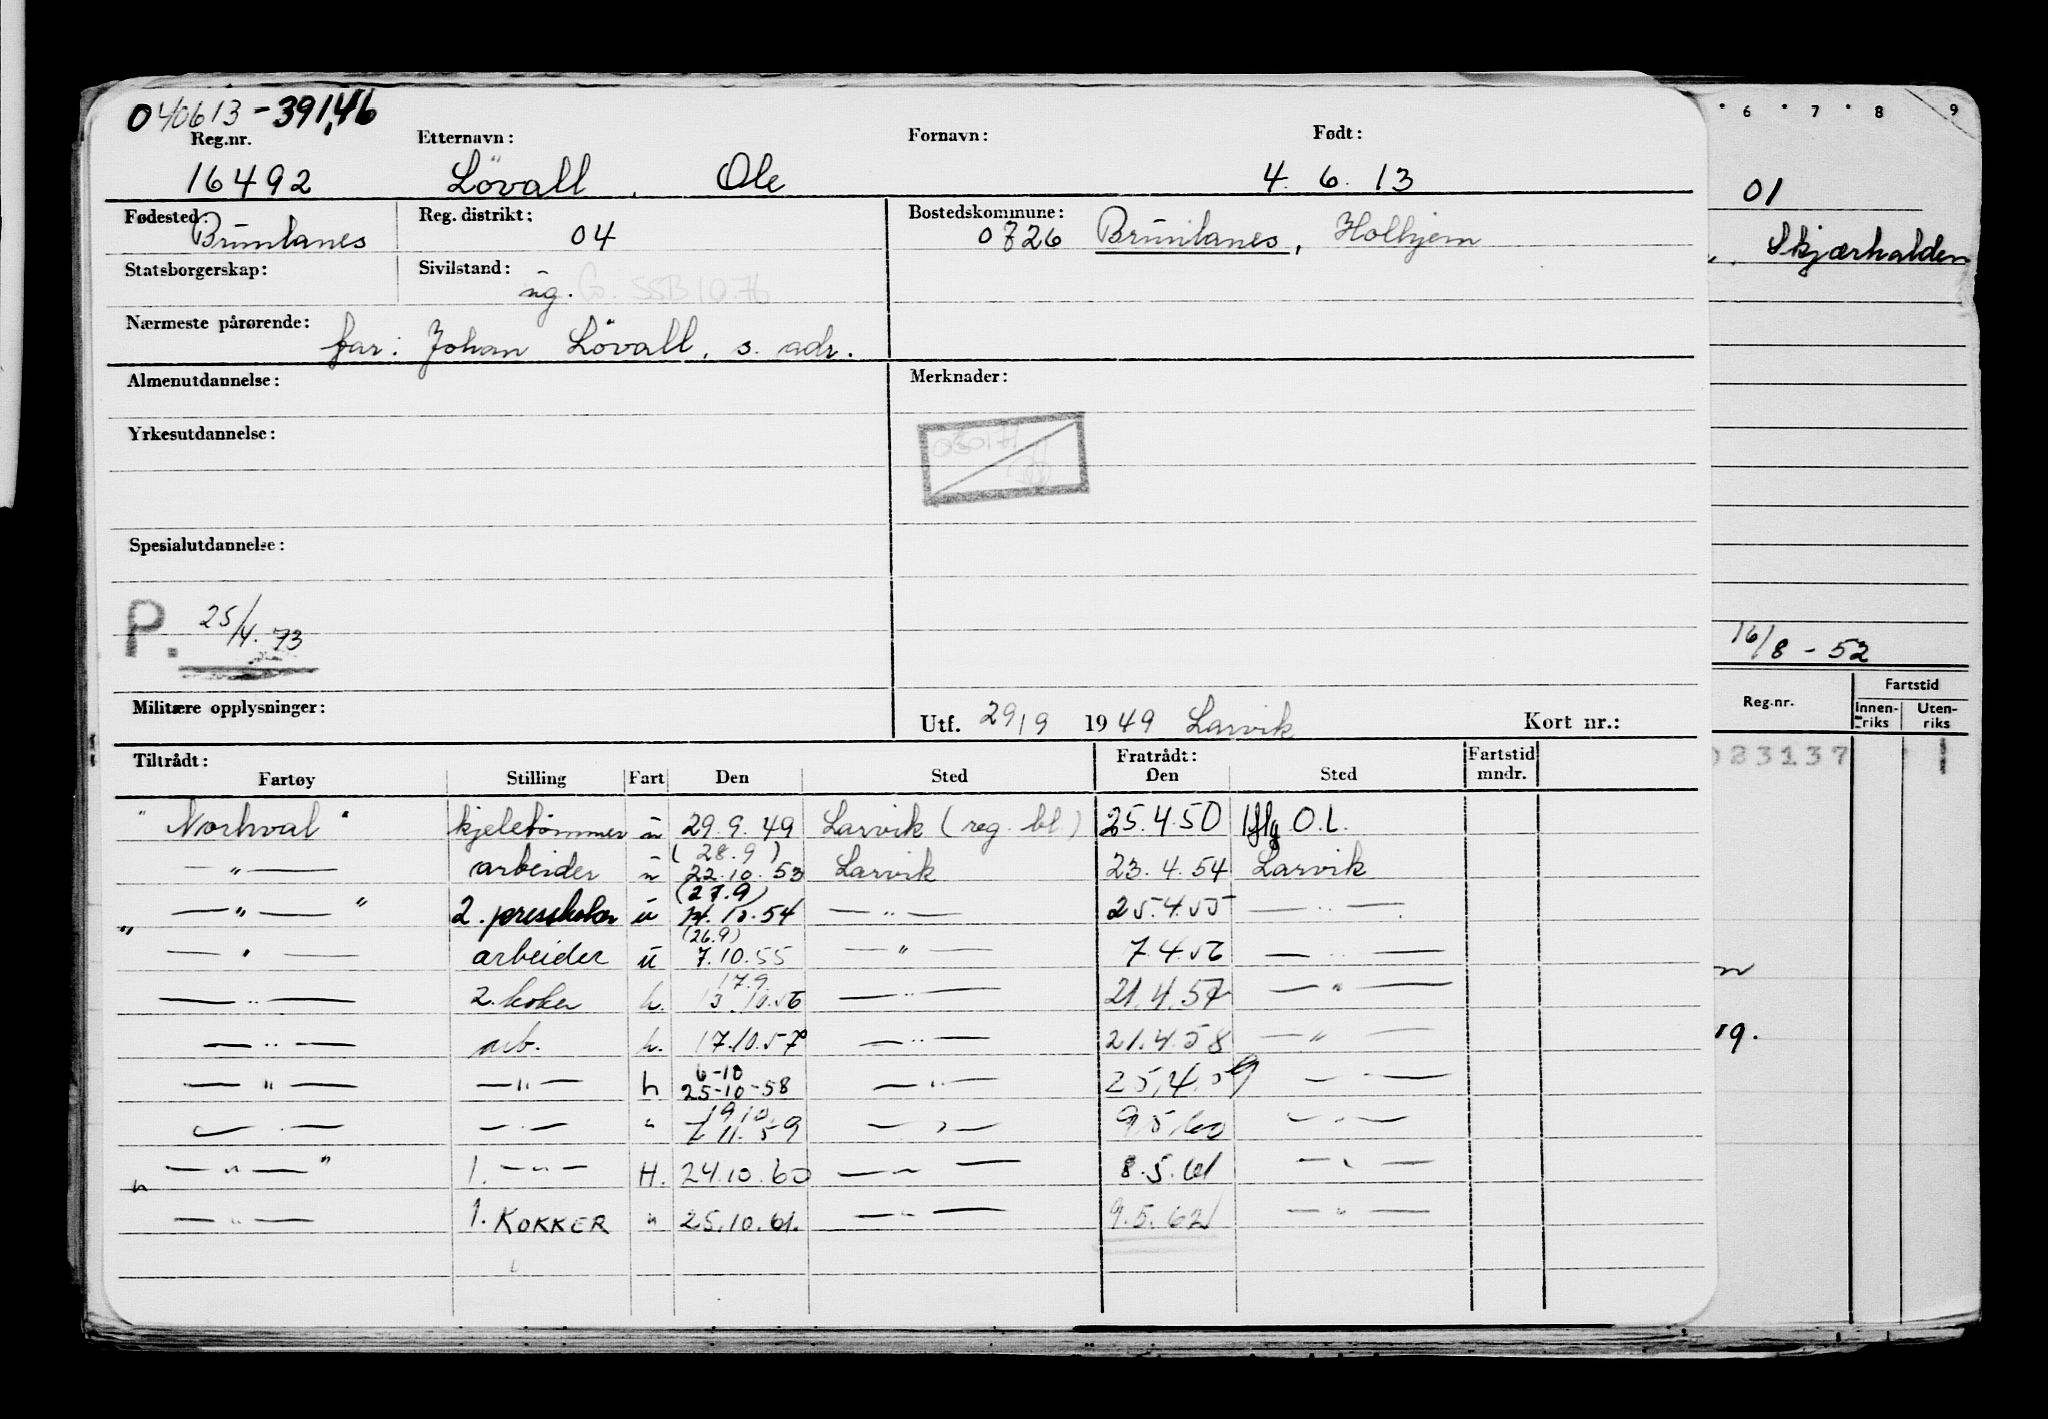 040613-39146
6 7 8 9
Reg.nr. Etternavn: Fornavn: Født:
16492 Lövall, Ole 4. 6. 13
01
Fødested: Brunlanes Reg. distrikt: 04 Bostedskommune: 0726 Brunlanes, Holhjem
Skjærhalden
Statsborgerskap: Sivilstand: ug. G. SSB.10.76
Nærmeste pårørende: far: Johan Lövall, s. adr.
Almenutdannelse: Merknader:
Yrkesutdannelse:
Spesialutdannelse:
P. 25/4. 73
16/8 - 52
Militære opplysninger: Utf. 29/9 1949 Larvik Kort nr.:
Reg.nr. Fartstid
Innen-riks Uten-riks
Tiltrådt: Fratrådt: Fartstid
Fartøy Stilling Fart Den Sted Den Sted mndr.
83137 1
"Norhval" kjeletømmer u 29. 9. 49 Larvik (reg. bl) 25.4.50 O.L.
(28.9)
— " — arbeider u 22.10.53 Larvik 23.4.54 Larvik
(27.9)
" — " — " 2. pressekoker u 14.10.54 — " — 25.4.55 — " —
(26.9)
— " — arbeider u 7.10.55 — " — 7.4.56 — " —
17.9
— " — 2. koker h. 13.10.56 — " — 21.4.57 — " —
— " — arb. h. 17.10.57 — " — 21.4.58 — " —
6-10
— " — — " — h 25-10-58 — " — 25.4.59 — " —
19.10
— " — — " — " 7.11.59 — " — 9.5.60 — " —
" — " — " 1. — " — H. 24.10.60 — " — 8.5.61 — " —
— " — 1. KOKKER " 25.10.61. — " — 9.5.62 — " —
19.